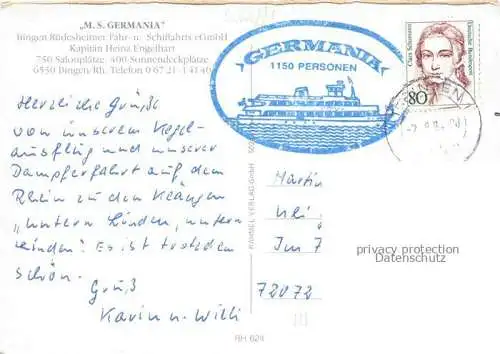 „M. S. GERMANIA"
Bingen Rüdesheimer Fähr- u. Schiffahrts eGmbH
Kapitän Heinz Engelhart
750 Salonplätze, 400 Sonnendeckplätze
6530 Bingen/Rh. Telefon 0 67 21-1 41 40
GERMANIA
1150 PERSONEN
Clara Schumann
Deutsche Bundespost
80
BINGEN
Herzliche Grüße
von unserem Kegel-
ausflug und unserer
Dampferfahrt auf dem
Rhein zu den Klängen
„untern Linden, untern
Linden! Es ist trotzdem
schön.
Gruß
Karin u. Willi
Martin
Im 7
72072
privacy protection
Datenschutz
VERLAG GmbH
RH 624